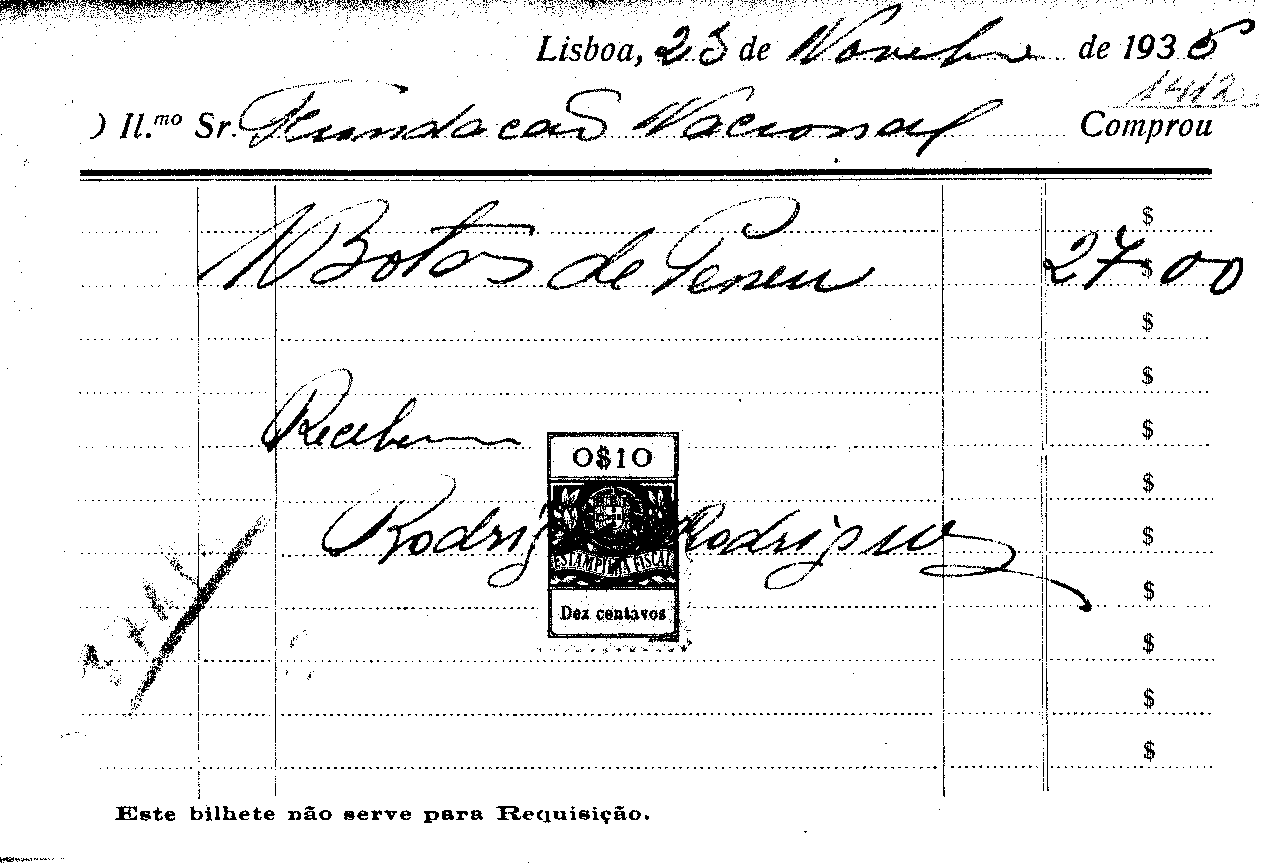 Lisboa, 23 de Novembro de 1935
1412
) Il.mo Sr. Fundacao Nacional Comprou
$
1 Botas de Peneu 27$00
$
$
Recebemos
$
0$10
$
Rodrigues Rodrigues
$
ESTAMPILHA FISCAL
$
Dez centavos
$
$
$
Este bilhete não serve para Requisição.